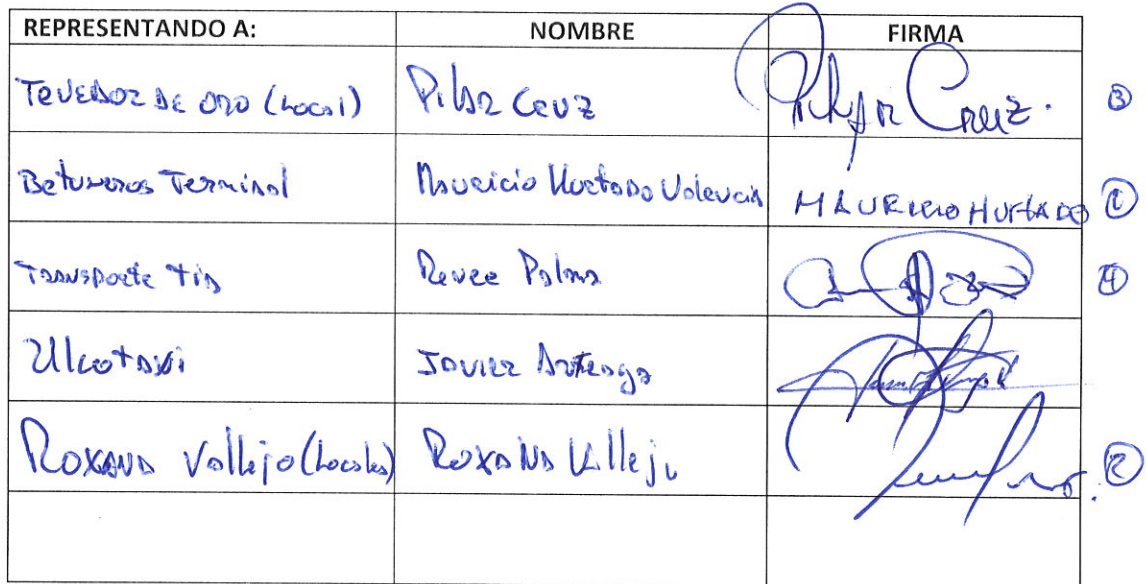 REPRESENTANDO A: NOMBRE FIRMA
TENEDOR DE ORO (Local) Pilar Cruz Pilar Cruz. 3
Betuneros Terminal Mauricio Hurtado Valencia MAURICIO HURTADO 1
Transporte Tia Renee Palma 4
Ulcotaxi Javier Arteaga
Roxana Vallejo (Locales) Roxana Vallejo 2